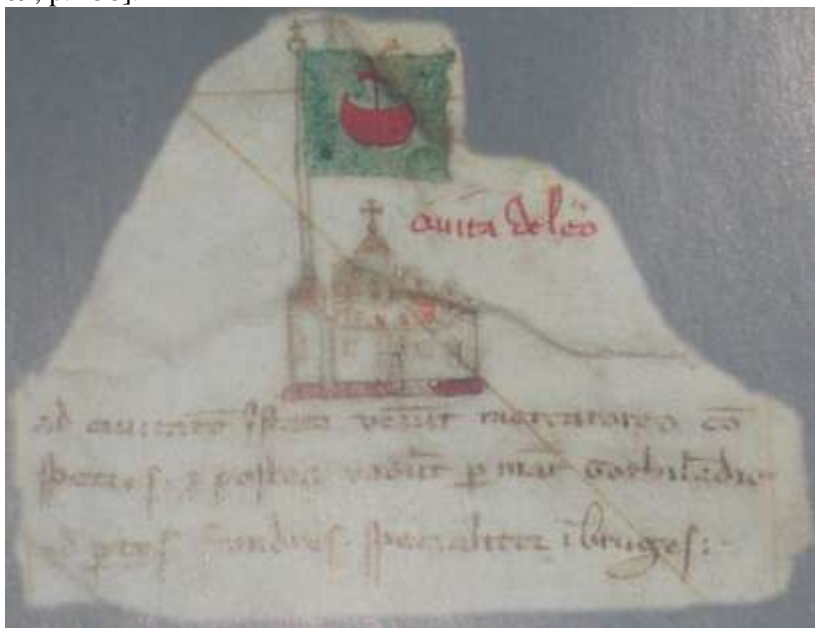 ciuita de leō
ad ciuitatē istam veniūt mercatores cō
speties. ⁊ postea vadūt p mar gothilādie
ad ptes flandres. specialiter ī bruges: